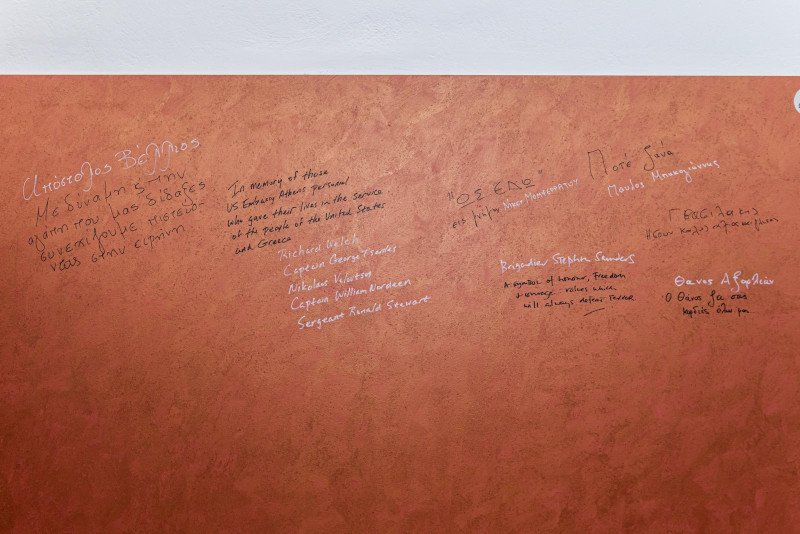 Απόστολος Βέλλιος
Με δύναμη & την
αγάπη που μας δίδαξες
συνεχίζουμε πιστεύο-
ντας στην ειρήνη
In memory of those
US Embassy Athens personnel
who gave their lives in the service
of the people of the United States
and Greece
Richard Welch
Captain George Tsantes
Nikolaos Veloutsos
Captain William Nordeen
Sergeant Ronald Stewart
"ΩΣ ΕΔΩ"
εις μνήμην ΝΙΚΟΥ ΜΟΜΦΕΡΡΑΤΟΥ
Ποτέ ξανά
Παύλος Μπακογιάννης
Brigadier Stephen Saunders
A symbol of honour, freedom
& courage: values which
will always defeat terror
Θάνος Αξαρλιάν
Ο Θάνος ζει στις
καρδιές όλων μας